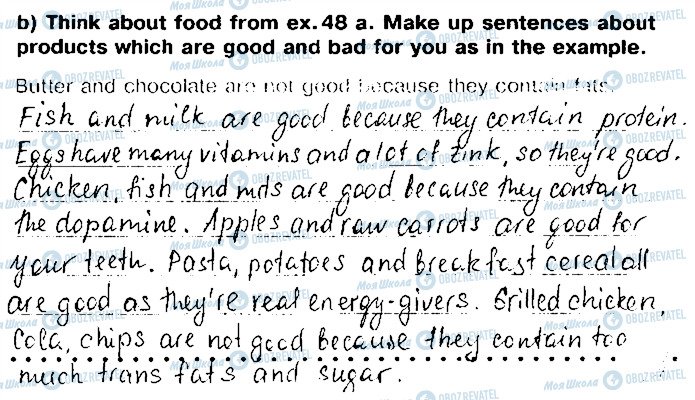 b) Think about food from ex. 48 a. Make up sentences about
products which are good and bad for you as in the example.
Butter and chocolate are not good because they contain fats.
Fish and milk are good because they contain protein.
Eggs have many vitamins and a lot of zink, so they're good.
Chicken, fish and nuts are good because they contain
the dopamine. Apples and raw carrots are good for
your teeth. Pasta, potatoes and breakfast cereal all
are good as they're real energy-givers. Grilled chicken,
Cola, chips are not good because they contain too
much trans fats and sugar.